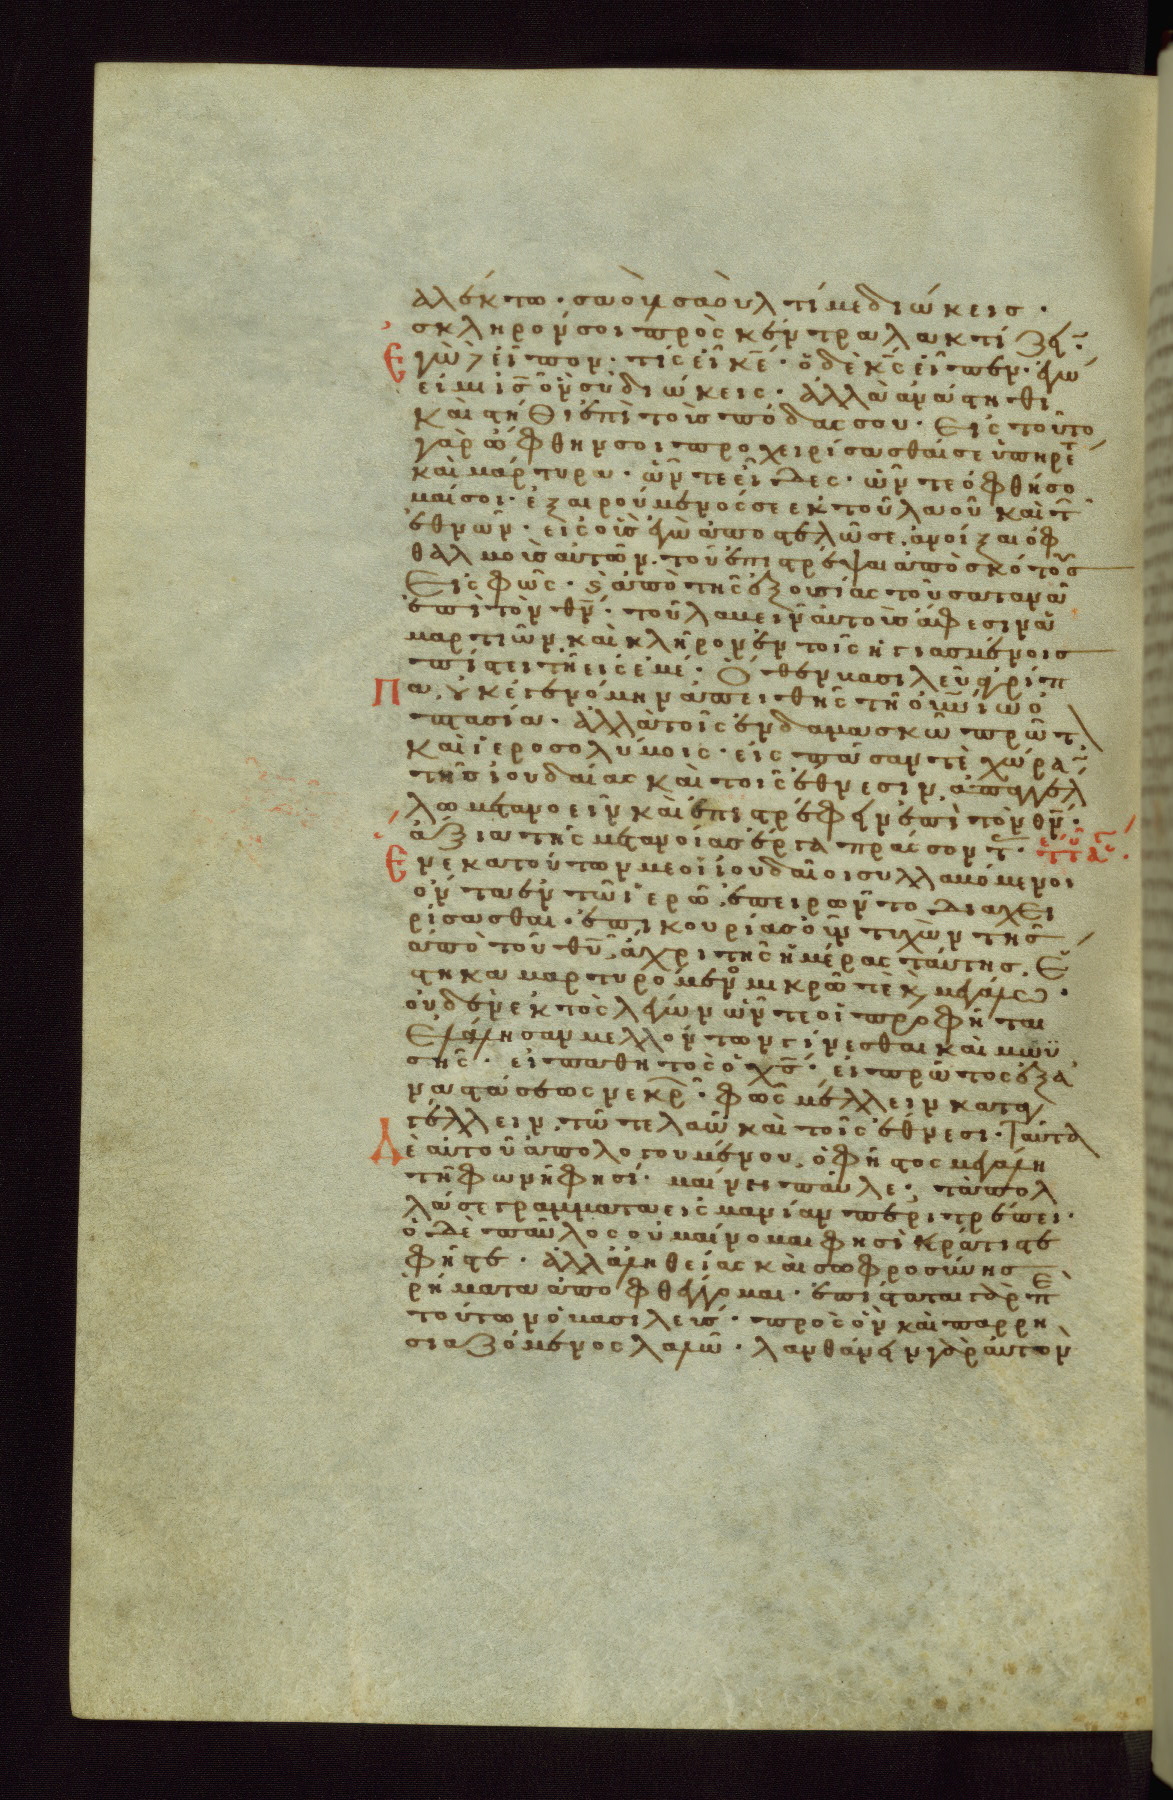 αλέκτω · σαοὺλ σαοὺλ τί με διώκεισ ·
σκληρόν σοι πρὸς κέντρα λακτίζειν·
Εγὼ δὲ εἶπον · τίς εἶ κε̅ · ὁ δὲ κς̅ εἶπεν · ἐγώ
εἰμι ις̅ ὃν σὺ διώκεις · ἀλλὰ ἀνάστηθι
καὶ στῆθι ἐπὶ τοὺσ πόδας σου · Εἰς τοῦτο
γὰρ ὤφθην σοι προχειρίσασθαί σε ὑπηρέτ
καὶ μάρτυρα · ὧν τε εἶδες · ὧν τε ὀφθήσο
μαί σοι · ἐξαιρούμενός σε ἐκ τοῦ λαοῦ καὶ τ
ἐθνῶν · εἰς οὓσ ἐγὼ ἀποστελῶ σε · ἀνοίξαι ὀφ
θαλμοὺσ αὐτῶν · τοῦ ἐπιστρέψαι ἀπὸ σκότουσ
Εἰς φῶς · ϗ ἀπὸ τῆς ἐξουσίας τοῦ σατανᾶ
ἐπὶ τὸν θν̅ · τοῦ λαβεῖν αὐτοὺσ ἄφεσιν ἁ
μαρτιῶν καὶ κλῆρον ἐν τοῖς ἡγιασμένοισ
πίστει τῇ εἰς ἐμέ · Ὅθεν βασιλεῦ ἀγρίπ
Πα, οὐκ ἐγενόμην ἀπειθὴς τῇ οὐνίω ὀ
πτασία · ἀλλὰ τοῖς ἐν δαμασκῶ πρῶτ
καὶ ἱεροσολύμοις · εἰς πᾶσαν τὲ χώραν
τῆσ ἰουδαίας καὶ τοῖς ἔθνεσιν, ἀπαγγέλ
λω μετανοεῖν καὶ ἐπιστρέφειν ἐπὶ τὸν θν̅ ·
ἄξια τῆς μετανοίασ ἔργα πράσσοντ ·
Ενεκα τούτων με οἱ ἰουδαῖοι συλλαβόμενοι
ὄντα ἐν τῶ ἱερῶ, ἐπειρῶντο διαχει
ρίσασθαι · ἐπικουρίασ οὖν τυχὼν τῆσ
ἀπὸ τοῦ θυ̅ ἄχρι τῆς ἡμέρας ταύτησ, Ἕ
στηκα μαρτυρόμενο μικρῶ τὲ ϗ μεγάλω ·
οὐδὲν ἐκτὸς λέγων ὧν τε οἱ προφῆται
Ελάλησαν μελλόντων γίνεσθαι καὶ μωϋ
σῆς · εἰ παθητὸς ὁ χς̅ · εἰ πρῶτος ἐξ ἀ
ναστάσεως νεκρ · φῶς μέλλειν καταγ
γέλλειν, τῶ τε λαῶ καὶ τοῖς ἔθνεσι · Ταῦτα
Δὲ αὐτοῦ ἀπολογουμένου, ὁ φῆστος μεγάλη
τῆ φωνῆ φησί · μαίνει παῦλε, τὰ πολ
λά σε γράμματα εἰς μανίαν περιτρέπει ·
ὁ δὲ παῦλος οὐ μαίνομαι φησὶ κράτιστε
φῆστε · ἀλλὰ ἀληθείας καὶ σωφροσύνησ
ῥήματα ἀποφθέγγομαι · ἐπίσταται γὰρ πε
τούτων ὁ βασιλεύσ · πρὸς ὃν καὶ παρρη
σιαζόμενος λαλῶ · λανθάνειν γὰρ αὐτὸν